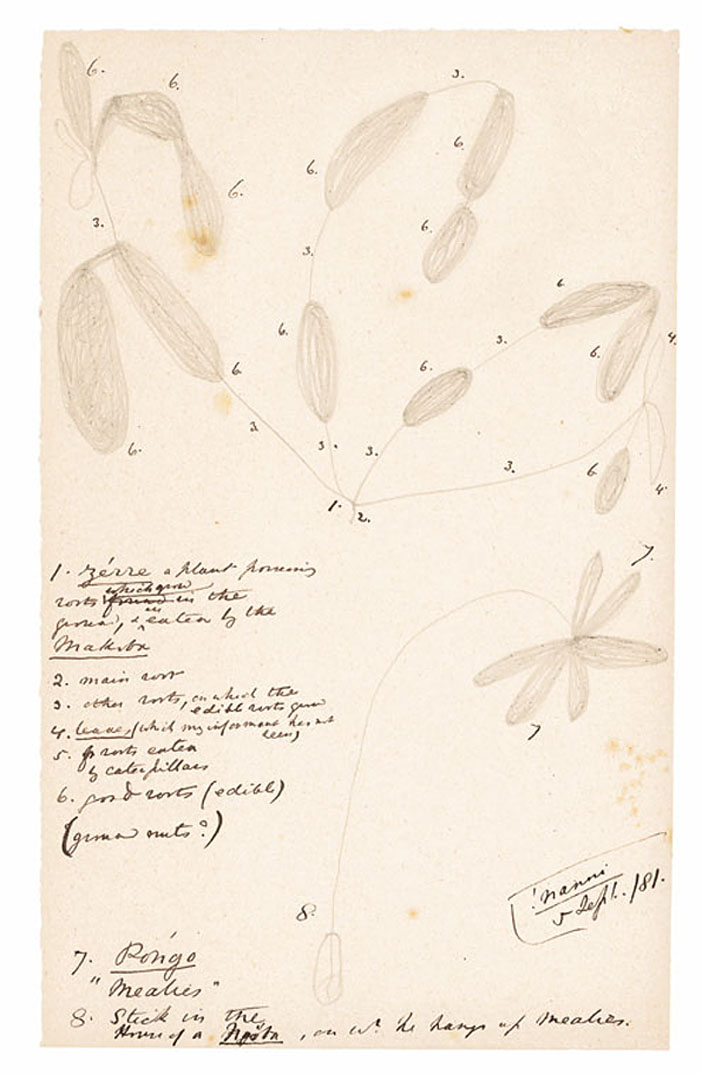 6.
6.
6.
3.
6.
6.
3.
6.
6.
6.
3.
6.
3.
3.
6.
3.
6.
6.
4.
3.
6.
4.
1. 2.
1. Zérre a plant possessing
which grow
roots found in the
ground, & eaten by the
Makoba
2. main root
3. other roots, on which the
edible roots grow
4. leaves (which my informant has not
seen)
5. roots eaten
by caterpillars
6. good roots (edible)
(ground nuts?)
7.
7
!nanni
5 Sept. /81.
8.
7. Rongo
"Mealies"
8. Stick in the
House of a , on wh. he hangs up mealies.